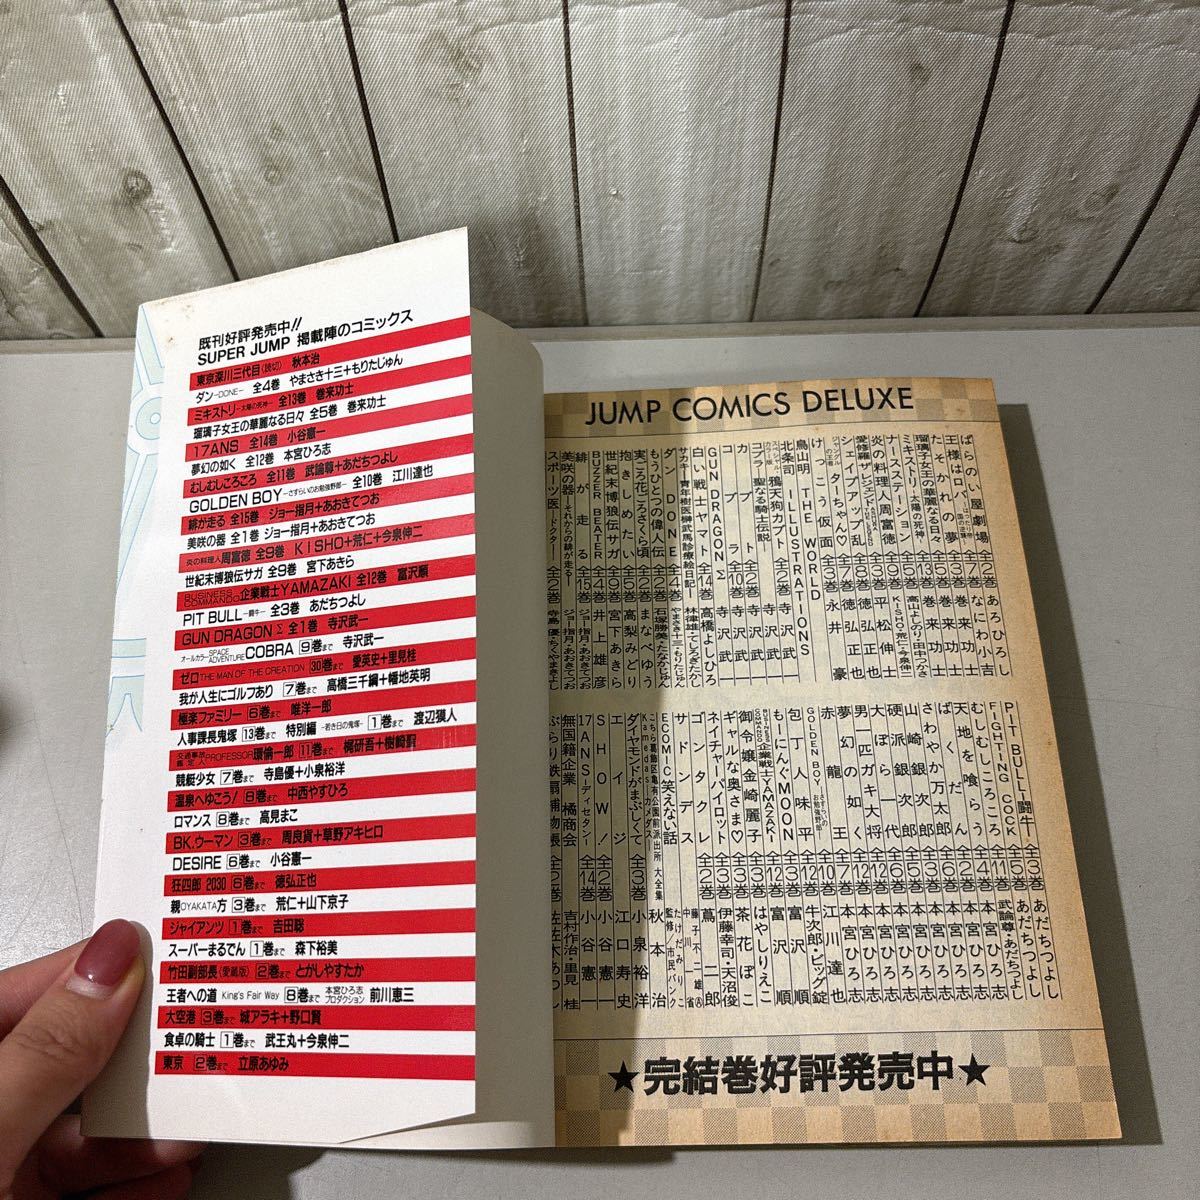 既刊好評発売中!!
SUPER JUMP 掲載陣のコミックス
東京深川三代目(読切) 秋本治
ダン-DONE- 全4巻 やまさき十三+もりたじゅん
ミキストリ-太陽の死神- 全13巻 巻来功士
瑠璃子女王の華麗なる日々 全5巻 巻来功士
17ANS 全14巻 小谷憲一
夢幻の如く 全12巻 本宮ひろ志
むしむしころころ 全11巻 武論尊+あだちつよし
GOLDEN BOY-さすらいのお勉強野郎- 全10巻 江川達也
緋が走る 全15巻 ジョー指月+あおきてつお
美咲の器 全1巻 ジョー指月+あおきてつお
炎の料理人周富徳 全9巻 KISHO+荒仁+今泉伸二
世紀末博狼伝サガ 全9巻 宮下あきら
BUSINESS COMMANDO企業戦士YAMAZAKI 全12巻 富沢順
PIT BULL-闘牛- 全3巻 あだちつよし
GUN DRAGONΣ 全1巻 寺沢武一
オールカラーSPACE ADVENTURE COBRA 9巻まで 寺沢武一
ゼロ THE MAN OF THE CREATION 30巻まで 愛英史+里見桂
我が人生にゴルフあり 7巻まで 高橋三千綱+幡地英明
極楽ファミリー 6巻まで 唯洋一郎
人事課長鬼塚 13巻まで 特別編-若き日の鬼塚- 1巻まで 渡辺獏人
交通事故鑑定人PROFESSOR環倫一郎 11巻まで 梶研吾+樹崎聖
競艇少女 7巻まで 寺島優+小泉裕洋
温泉へゆこう! 8巻まで 中西やすひろ
ロマンス 8巻まで 高見まこ
BK.ウーマン 3巻まで 周良貨+草野アキヒロ
DESIRE 6巻まで 小谷憲一
狂四郎 2030 6巻まで 徳弘正也
親OYAKATA方 3巻まで 荒仁+山下京子
ジャイアンツ 1巻まで 吉田聡
スーパーまるでん 1巻まで 森下裕美
竹田副部長(愛蔵版) 2巻まで とがしやすたか
王者への道 King's Fair Way 8巻まで 本宮ひろ志プロダクション 前川恵三
大空港 3巻まで 城アラキ+野口賢
食卓の騎士 1巻まで 武王丸+今泉伸二
東京 2巻まで 立原あゆみ
JUMP COMICS DELUXE
ばらのい屋劇場 全2巻 あろひろし
王様はロバ 全7巻 なにわ小吉
たそがれの夢 巻来功士
瑠璃子女王の華麗なる日々 全5巻 巻来功士
ミキストリ-太陽の死神- 全13巻 巻来功士
ナースステーション
炎の料理人周富徳 全9巻 KISHO・荒仁・今泉伸二
愛修羅 平松伸二
シェイプアップ乱 徳弘正也
ジャングルの王者 ターちゃん♡ 全7巻 徳弘正也
けっこう仮面 全3巻 永井豪
鳥山明 THE WORLD
北条司 ILLUSTRATIONS
スペシャル 鴉天狗カブト 全2巻 寺沢武一
コブラ 聖なる騎士伝説 寺沢武一
コブラ 全10巻 寺沢武一
GUN DRAGONΣ 寺沢武一
白い戦士ヤマト 全14巻 高橋よしひろ
サスキー青年樹医榊武馬診療絵日記 林律雄・てしろぎたかし
ダン DONE 全4巻 やまさき十三・もりたじゅん
もうひとつの偉人伝 全2巻 石塚勝美・たなかじゅん
実ころ花ころざくら頃 全2巻 まなべゆう
抱きしめたい 全5巻 高梨みどり
世紀末博狼伝サガ 全9巻 宮下あきら
BUZZER BEATER 全4巻 井上雄彦
緋が走る 全15巻 ジョー指月・あおきてつお
美咲の器-それからの緋が走る- ジョー指月・あおきてつお
スポーツ医-ドクター- 全2巻 寺島優・もくやまきよし
PIT BULL-闘牛- 全3巻 あだちつよし
FIGHTING COCK 全5巻 あだちつよし
むしむしころころ 全11巻 武論尊・あだちつよし
天地を喰らう 全4巻 本宮ひろ志
ばくだん 全2巻 本宮ひろ志
さわやか万太郎 全6巻 本宮ひろ志
山崎銀次郎 本宮ひろ志
硬派銀次郎 本宮ひろ志
大ぼら一代 本宮ひろ志
男一匹ガキ大将 全7巻 本宮ひろ志
夢幻の如く 全12巻 本宮ひろ志
赤龍王 全7巻 本宮ひろ志
GOLDEN BOY さすらいのお勉強野郎 全10巻 江川達也
包丁人味平 全12巻 牛次郎・ビッグ錠
もーにんぐMOON 富沢順
BUSINESS COMMANDO 企業戦士YAMAZAKI 全12巻 富沢順
御令嬢金崎麗子 はやしりえこ
ギャルな奥さま♡ 全3巻 茶花ぽこ
ネイチャーパイロット 伊藤幸司・天沼俊
ゴンタクレ 全3巻 蔦二郎
サドンデス 中川一雄
ECOMIC笑えない話 監修・市民バンク たけだみりこ
こちら葛飾区亀有公園前派出所 大全集 Kamedas-カメダス- 秋本治
ダイヤモンドがまぶしくて 全3巻 小泉裕洋
エイジ 江口寿史
SHOW! 全2巻 小谷憲一
17ANS-ディセタン- 全14巻 小谷憲一
無国籍企業 橘商会 吉村作治・里見桂
ぶらり鉄扇捕物帳 全2巻 佐佐木あつし
★完結巻好評発売中★